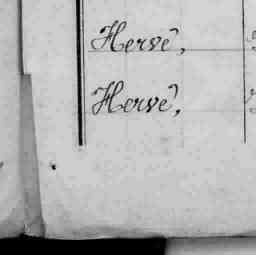 Hervé,
Hervé,